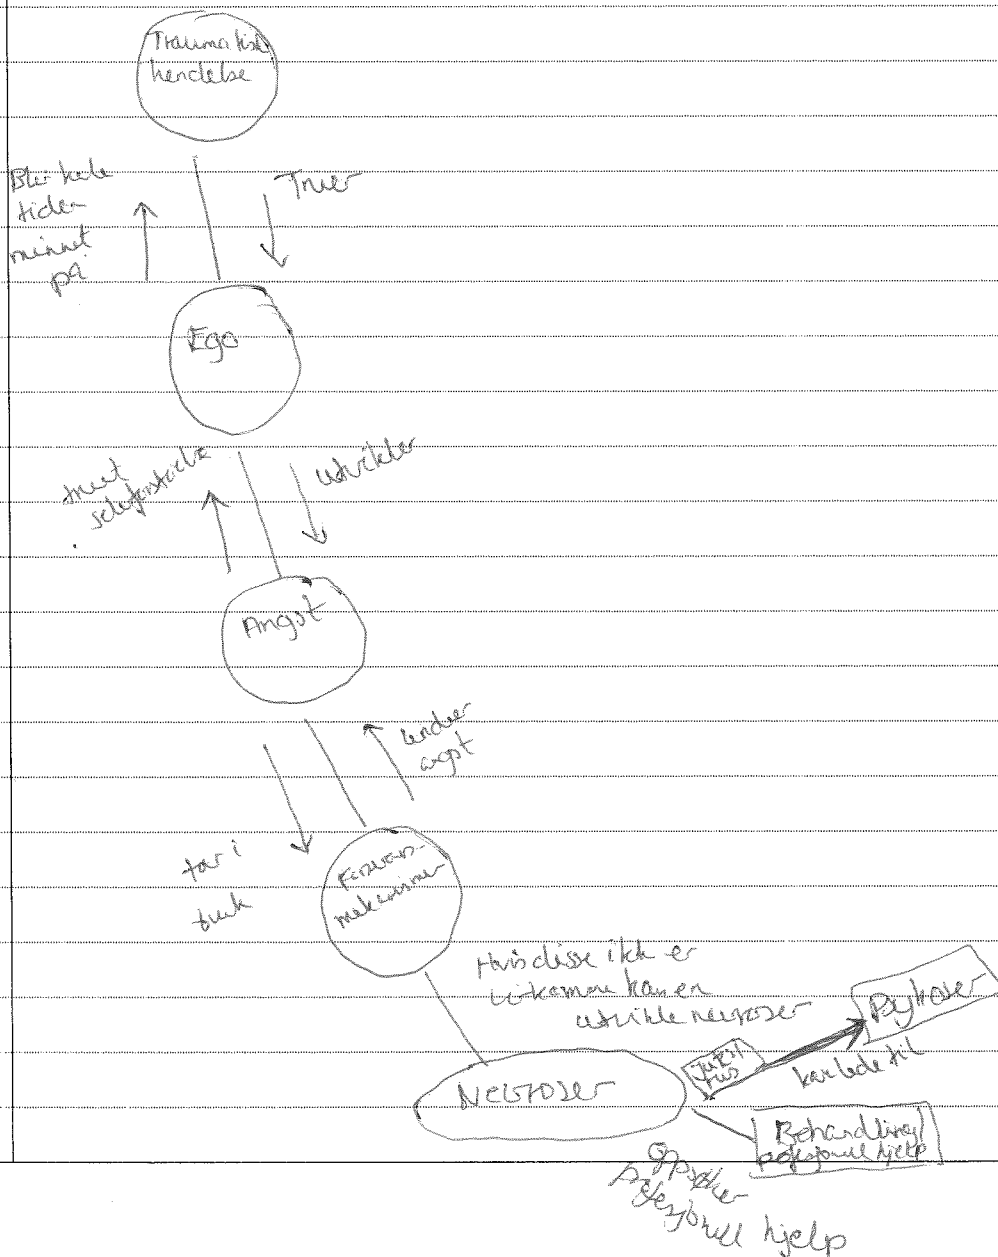 Traumatisk
hendelse
Blir hele
tiden
minnet
på
Truer
Ego
truet
selvfølelse
utvikler
Angst
endrer
angst
tar i
bruk
Forsvars-
mekanismer
Hvis disse ikke er
kan en
utvikle nevroser
Psykoser
rus
kan lede til
Nevroser
Behandling/
profesjonell hjelp
Oppsøker
profesjonell hjelp